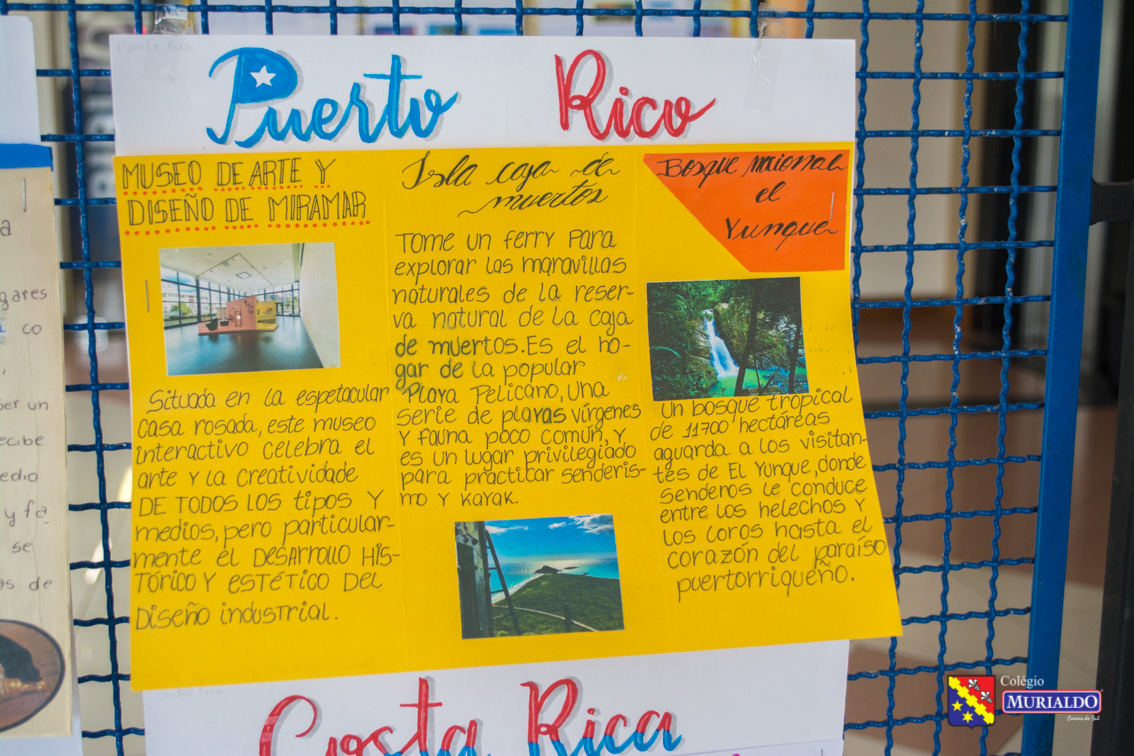 Puerto Rico
MUSEO DE ARTE Y
DISEÑO DE MIRAMAR
Situada en la espetacular
casa rosada, este museo
interactivo celebra el
arte y la creatividade
DE TODOS LOS tipos Y
medios, pero particular-
mente el DESARROLLO HIS-
TÓRICO Y ESTÉTICO DEL
DISEÑO industrial.
Isla caja de
muertos
TOME un ferry Para
explorar las maravillas
naturales de la reser-
va natural de la caja
de muertos. Es el ho-
gar de la popular
Playa Pelicano, una
serie de playas vírgenes
Y fauna poco común, y
es un lugar privilegiado
para practicar senderis-
mo y kayak.
Bosque nacional
el
Yunque
Un bosque tropical
de 11700 hectáreas
aguarda a los visitan-
tes de El Yunque, donde
senderos le conduce
entre los helechos y
los loros hasta el
corazón del paraíso
puertorriqueño.
Costa Rica
a
gares
co
ser un
ecibe
edio
y fa
se
as de
Colégio
MURIALDO
Caxias do Sul